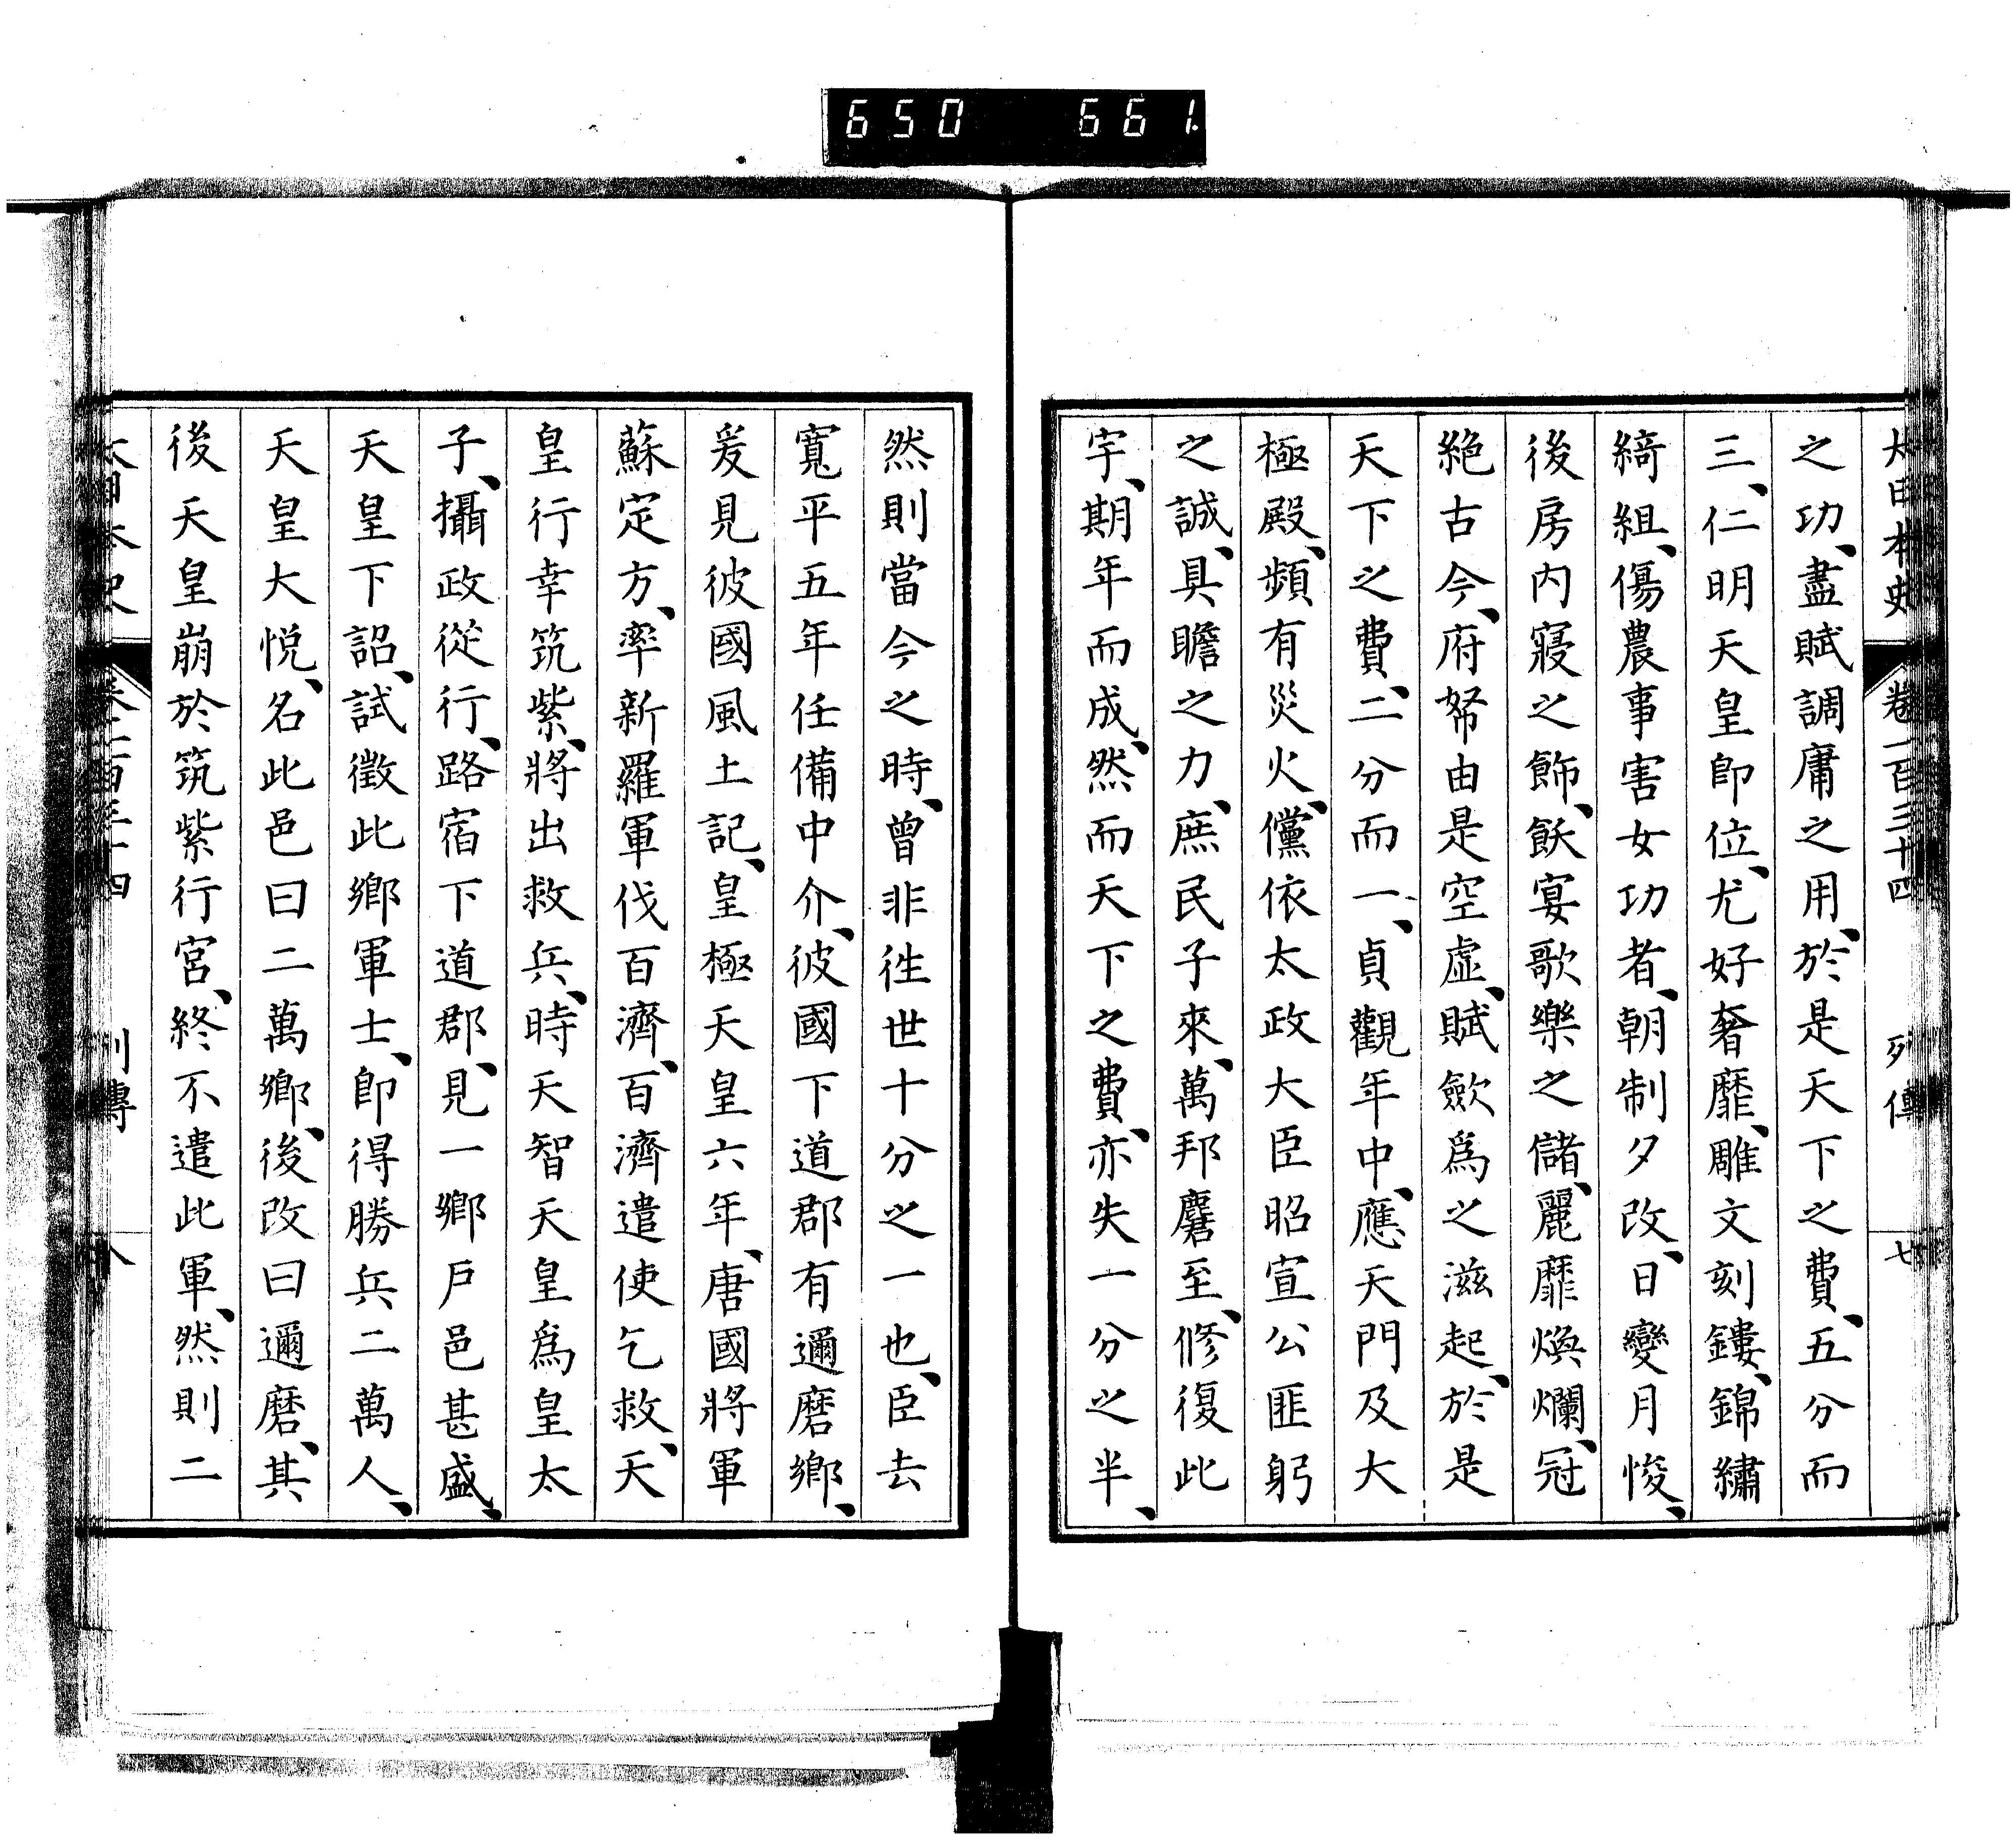 650 661.
大日本史 卷一百三十四 列傳 七
之功、盡賦調庸之用、於是天下之費、五分而
三、仁明天皇卽位、尤好奢靡、雕文刻鏤、錦繡
綺組、傷農事害女功者、朝制夕改、日變月悛、
後房內寢之飾、飫宴歌樂之儲、麗靡煥爛、冠
絶古今、府帑由是空虛、賦斂爲之滋起、於是
天下之費、二分而一、貞觀年中、應天門及大
極殿、頻有災火、儻依太政大臣昭宣公匪躬
之誠、具瞻之力、庶民子來、萬邦麕至、修復此
宇、期年而成、然而天下之費、亦失一分之半、
然則當今之時、曾非往世十分之一也、臣去
寬平五年任備中介、彼國下道郡有邇磨鄉、
爰見彼國風土記、皇極天皇六年、唐國將軍
蘇定方、率新羅軍伐百濟、百濟遣使乞救、天
皇行幸筑紫、將出救兵、時天智天皇爲皇太
子、攝政從行、路宿下道郡、見一鄉戶邑甚盛、
天皇下詔、試徵此鄉軍士、卽得勝兵二萬人、
天皇大悅、名此邑曰二萬鄉、後改曰邇磨、其
後天皇崩於筑紫行宮、終不遣此軍、然則二
大日本史 卷一百三十四 列傳 八